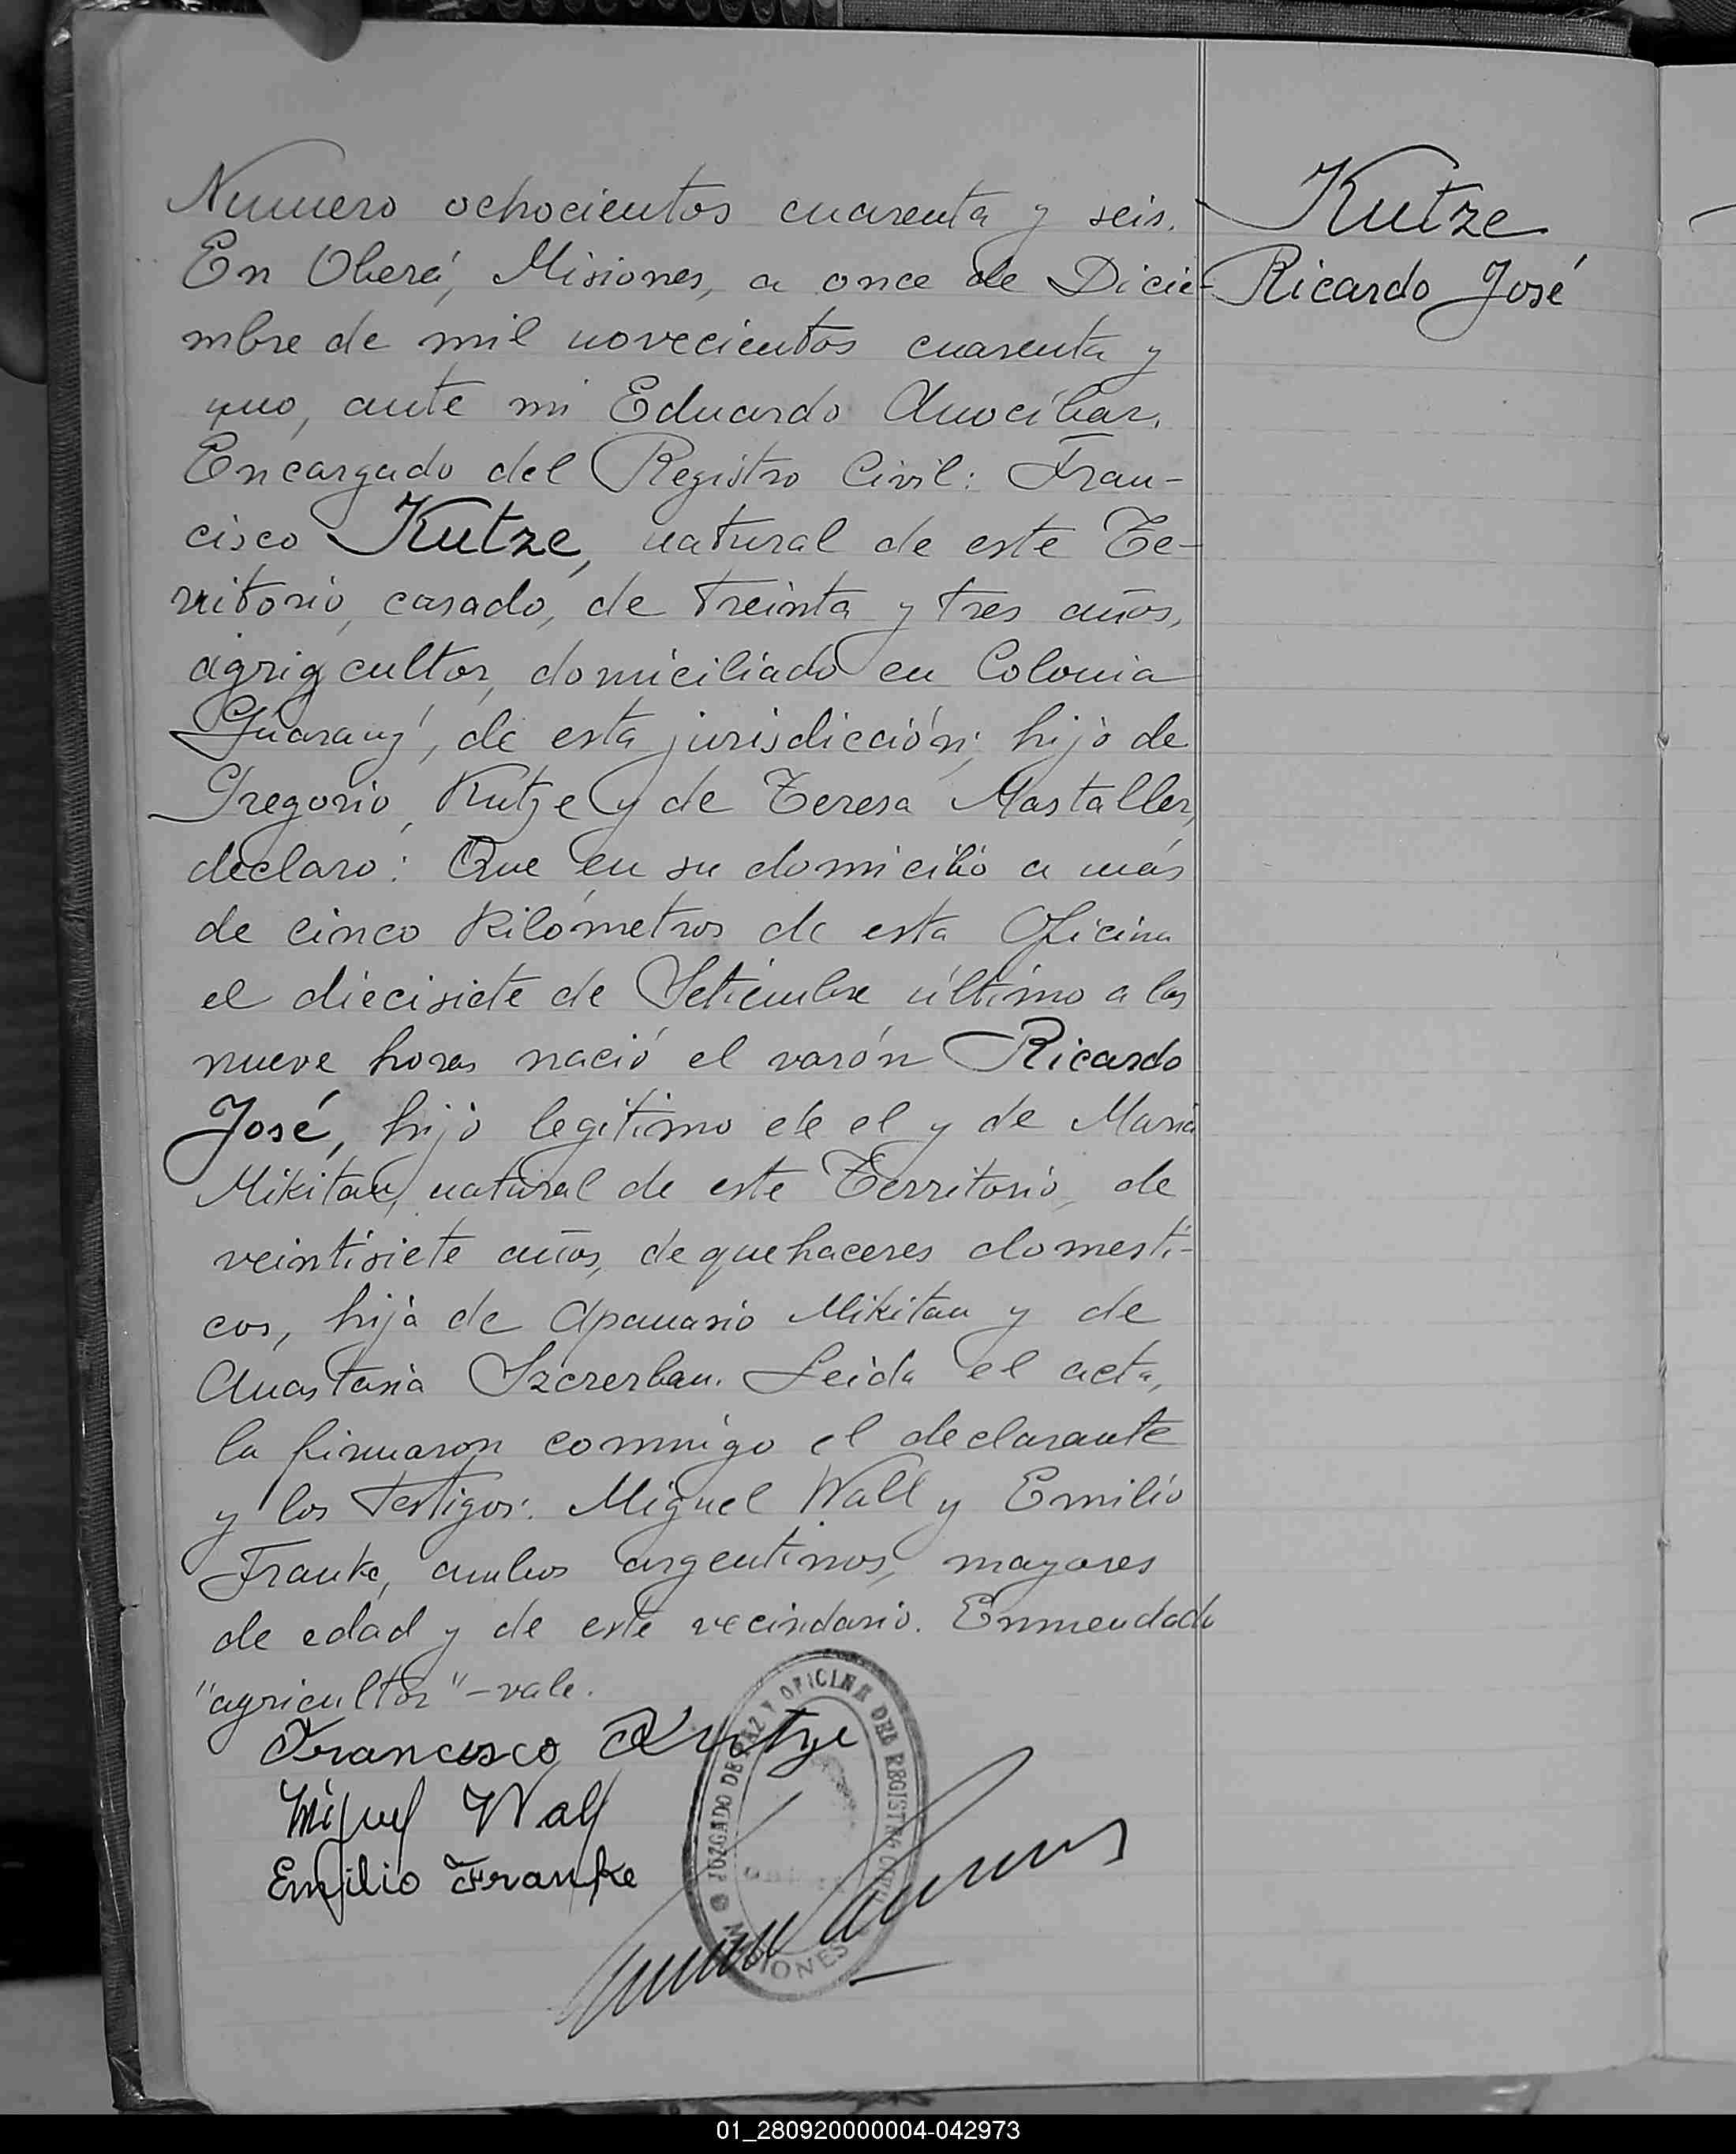 Numero ochocientos cuarenta y seis.
En Oberá, Misiones, a once de Dicie-
mbre de mil novecientos cuarenta y
uno, ante mi Eduardo Anocíbar,
Encargado del Registro Civil: Fran-
cisco Kutze, natural de este Te-
rritorio, casado, de treinta y tres años,
agrigcultor, domiciliado en Colonia
Guarany, de esta jurisdicción; hijo de
Gregorio Kutze y de Teresa Mastaller,
declaro: Que en su domicilio a más
de cinco Kilómetros de esta Oficina
el diecisiete de Setiembre último a las
nueve horas nació el varón Ricardo
José, hijo legitimo de el y de Maria
Mikitau, natural de este Territorio, de
veintisiete años, de quehaceres domesti-
cos, hija de Apanasio Mikitau y de
Anastasia Szcrerban. Leida el acta,
la firmaron conmigo el declarante
y los testigos: Miguel Wall y Emilio
Franke, ambos argentinos, mayores
de edad y de este vecindario. Enmendado
"agricultor"-vale.
Francisco Kutze
Miguel Wall
Emilio Franke
JUZGADO DE PAZ Y OFICINA DEL REGISTRO CIVIL
MISIONES
Kutze
Ricardo José
01_280920000004-042973